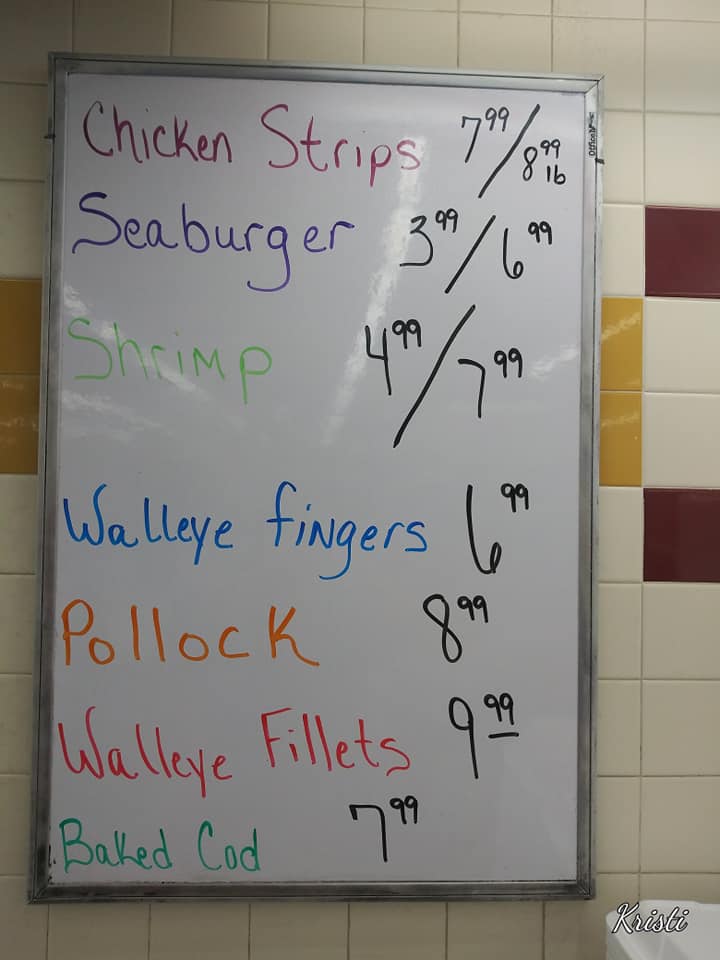 Chicken Strips 7.99/8.99 lb
Seaburger 3.99/6.99
Shrimp 4.99/7.99
Walleye fingers 6.99
Pollock 8.99
Walleye Fillets 9.99
Baked Cod 7.99
OfficeMax
Kristi